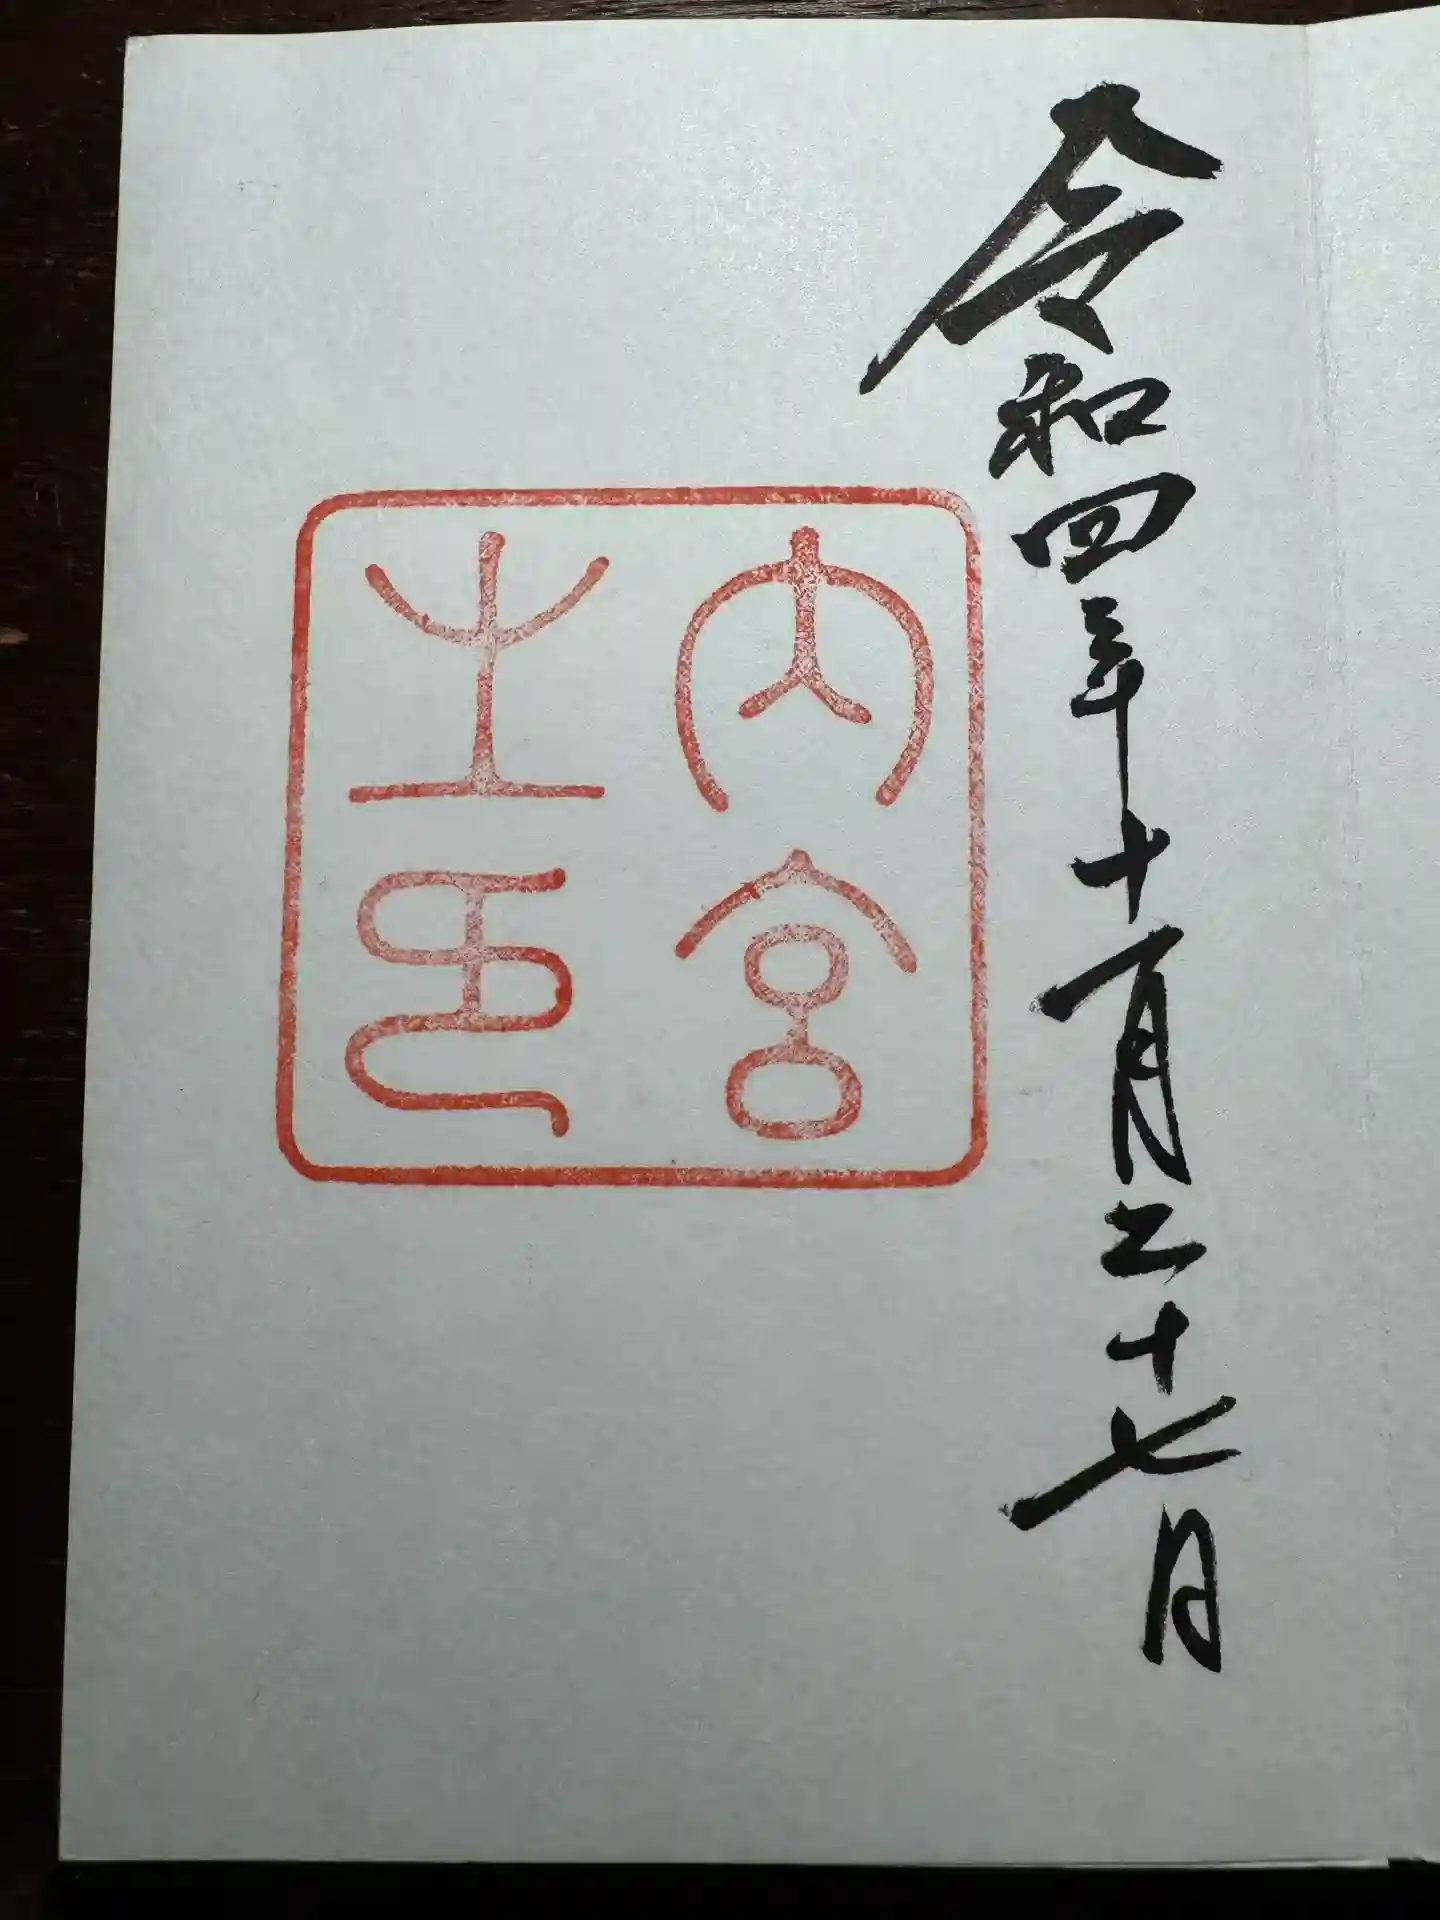 令和四年十一月二十七日
内宮
之印